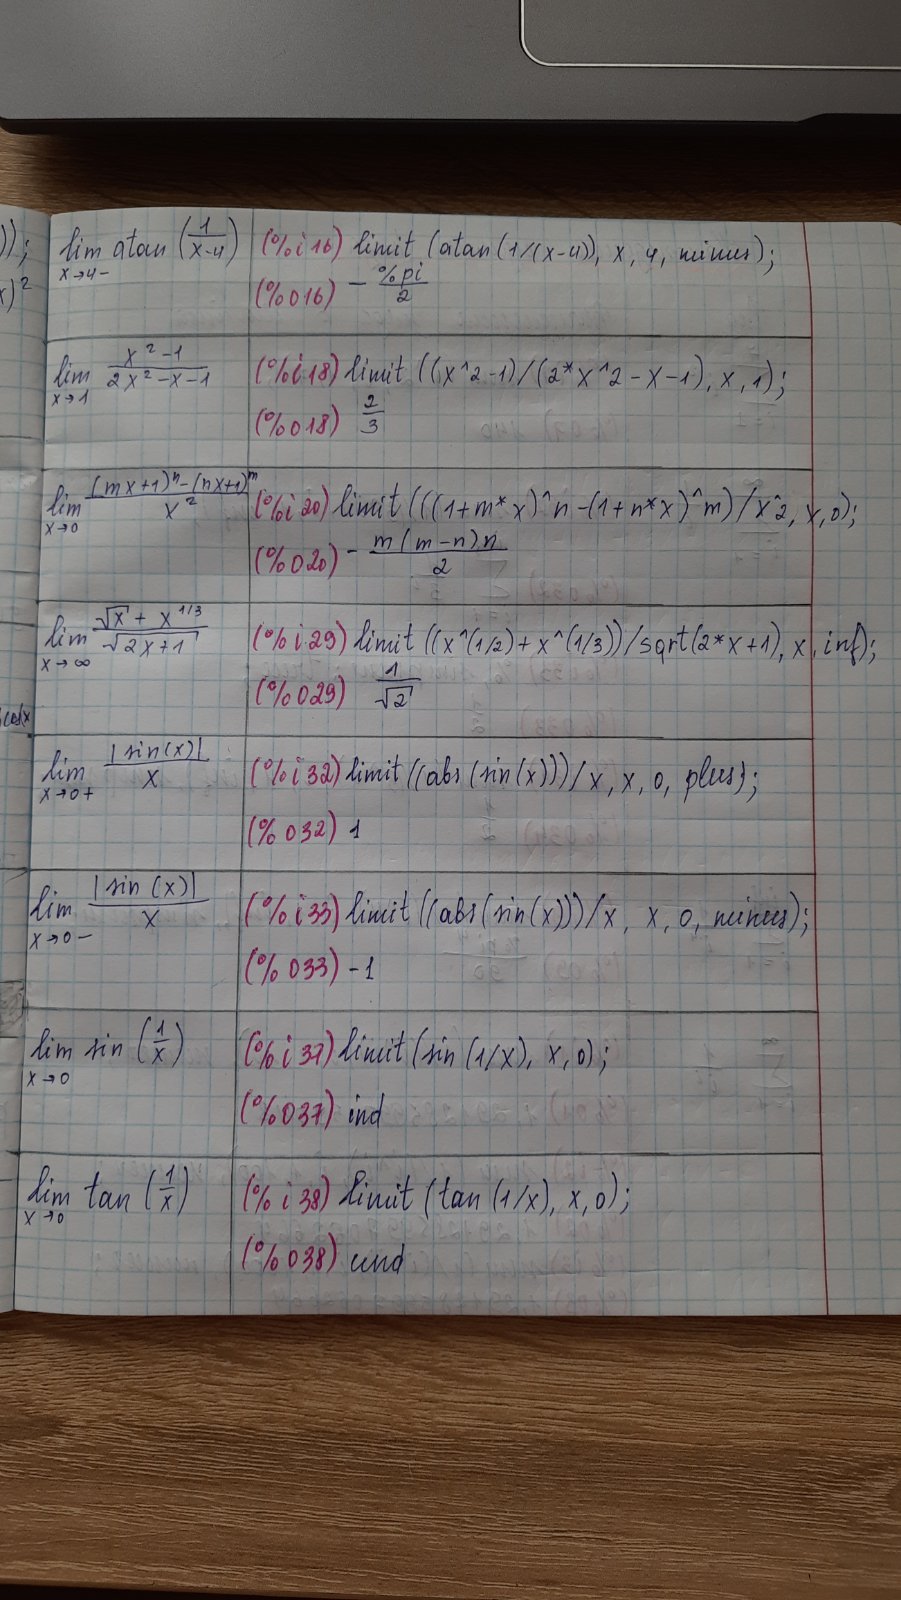 ));
x)²
cos(x
lim atan (1/(x-4))
x→4-
(%i16) limit (atan(1/(x-4)), x, 4, minus);
(%o16) - %pi/2
lim (x²-1)/(2x²-x-1)
x→1
(%i18) limit ((x^2-1)/(2*x^2-x-1), x, 1);
(%o18) 2/3
lim ((mx+1)ⁿ-(nx+1)ᵐ)/x²
x→0
(%i20) limit (((1+m*x)^n-(1+n*x)^m)/x^2, x, 0);
(%o20) - m(m-n)n/2
lim (√x + x^1/3)/√(2x+1)
x→∞
(%i29) limit ((x^(1/2)+x^(1/3))/sqrt(2*x+1), x, inf);
(%o29) 1/√2
lim |sin(x)|/x
x→0+
(%i32) limit((abs(sin(x)))/x, x, 0, plus);
(%o32) 1
lim |sin(x)|/x
x→0-
(%i33) limit((abs(sin(x)))/x, x, 0, minus);
(%o33) -1
lim sin (1/x)
x→0
(%i37) limit(sin(1/x), x, 0);
(%o37) ind
lim tan (1/x)
x→0
(%i38) limit (tan(1/x), x, 0);
(%o38) und